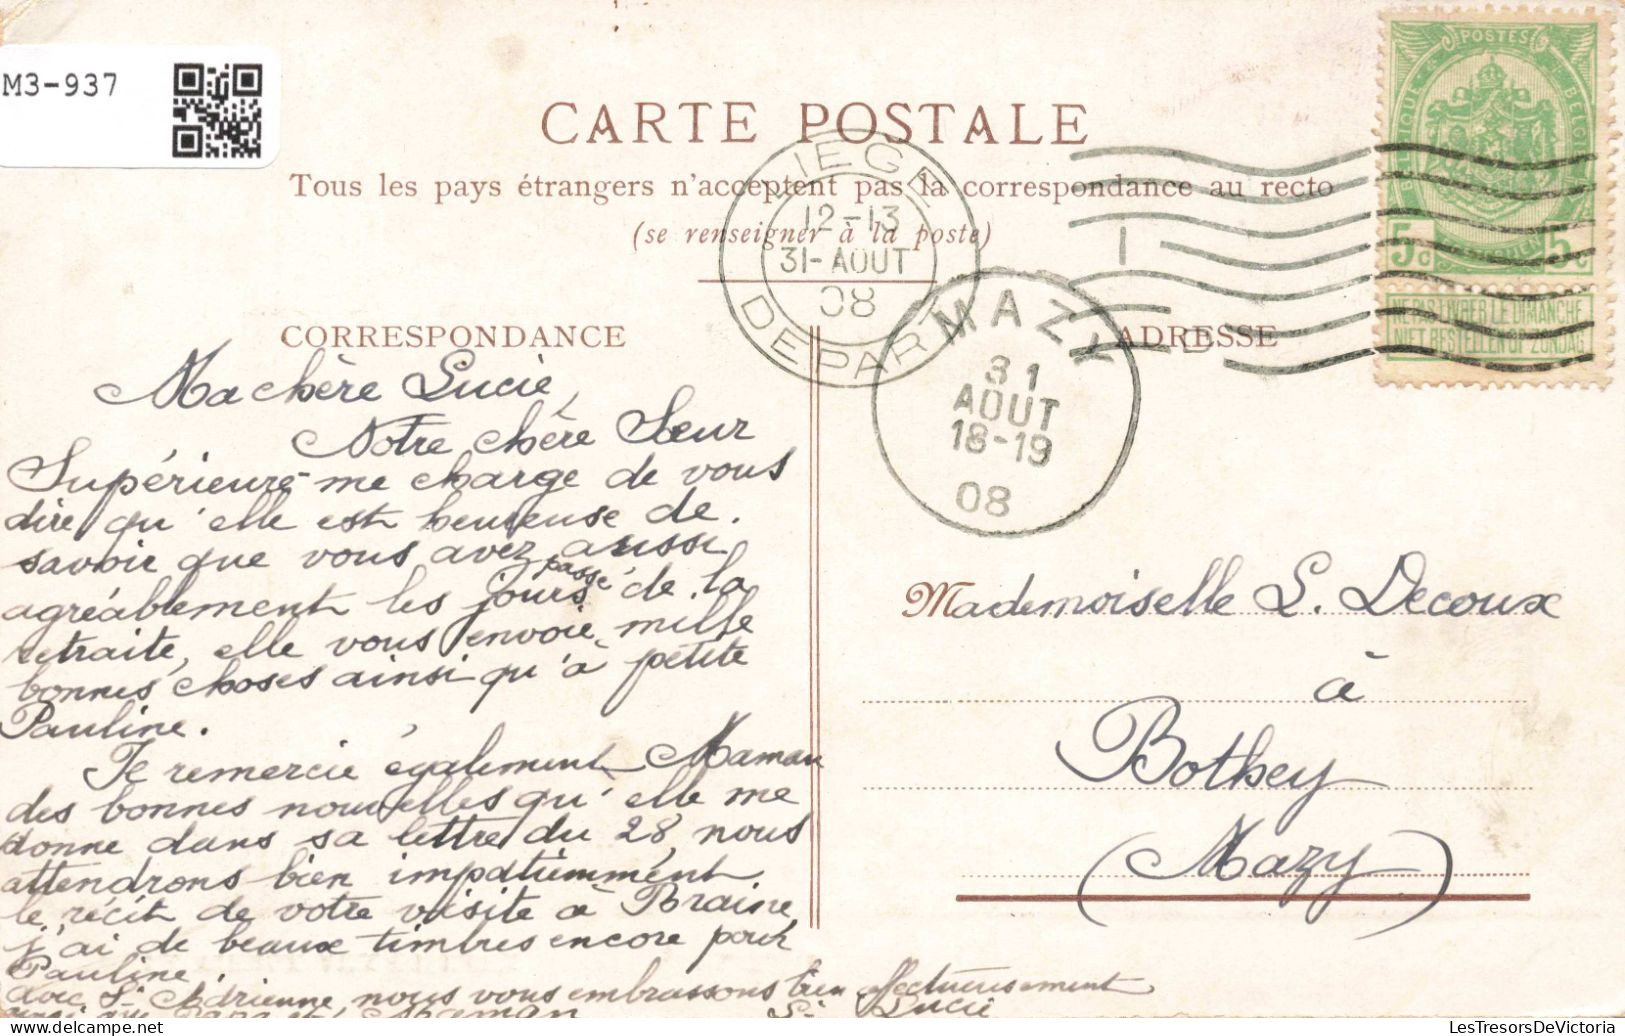 M3-937
CARTE POSTALE
Tous les pays étrangers n'acceptent pas la correspondance au recto
(se renseigner à la poste)
POSTES
BELGIQUE
BELGIE
5c
5c
NE PAS LIVRER LE DIMANCHE
NIET BESTELLEN OP ZONDAG
LIEGE
12-13
31-AOUT
08
DEPART
MAZY
31
AOUT
18-19
08
CORRESPONDANCE
ADRESSE
Ma chère Lucie,
Notre chère Sœur
Supérieure me charge de vous
dire qu'elle est heureuse de
savoir que vous avez aussi
passé
agréablement les jours de la
retraite, elle vous envoie mille
bonnes choses ainsi qu'à petite
Pauline.
Je remercie également Maman
des bonnes nouvelles qu'elle me
donne dans sa lettre du 28, nous
attendrons bien impatiemment
le récit de votre visite à Braine,
j'ai de beaux timbres encore pour
Pauline.
Avec Sr Adrienne, nous vous embrassons bien affectueusement
ainsi que Papa et Maman
Sr Lucie
Mademoiselle L. Decoux
à
Bothey
(Mazy)
LesTresorsDeVictoria